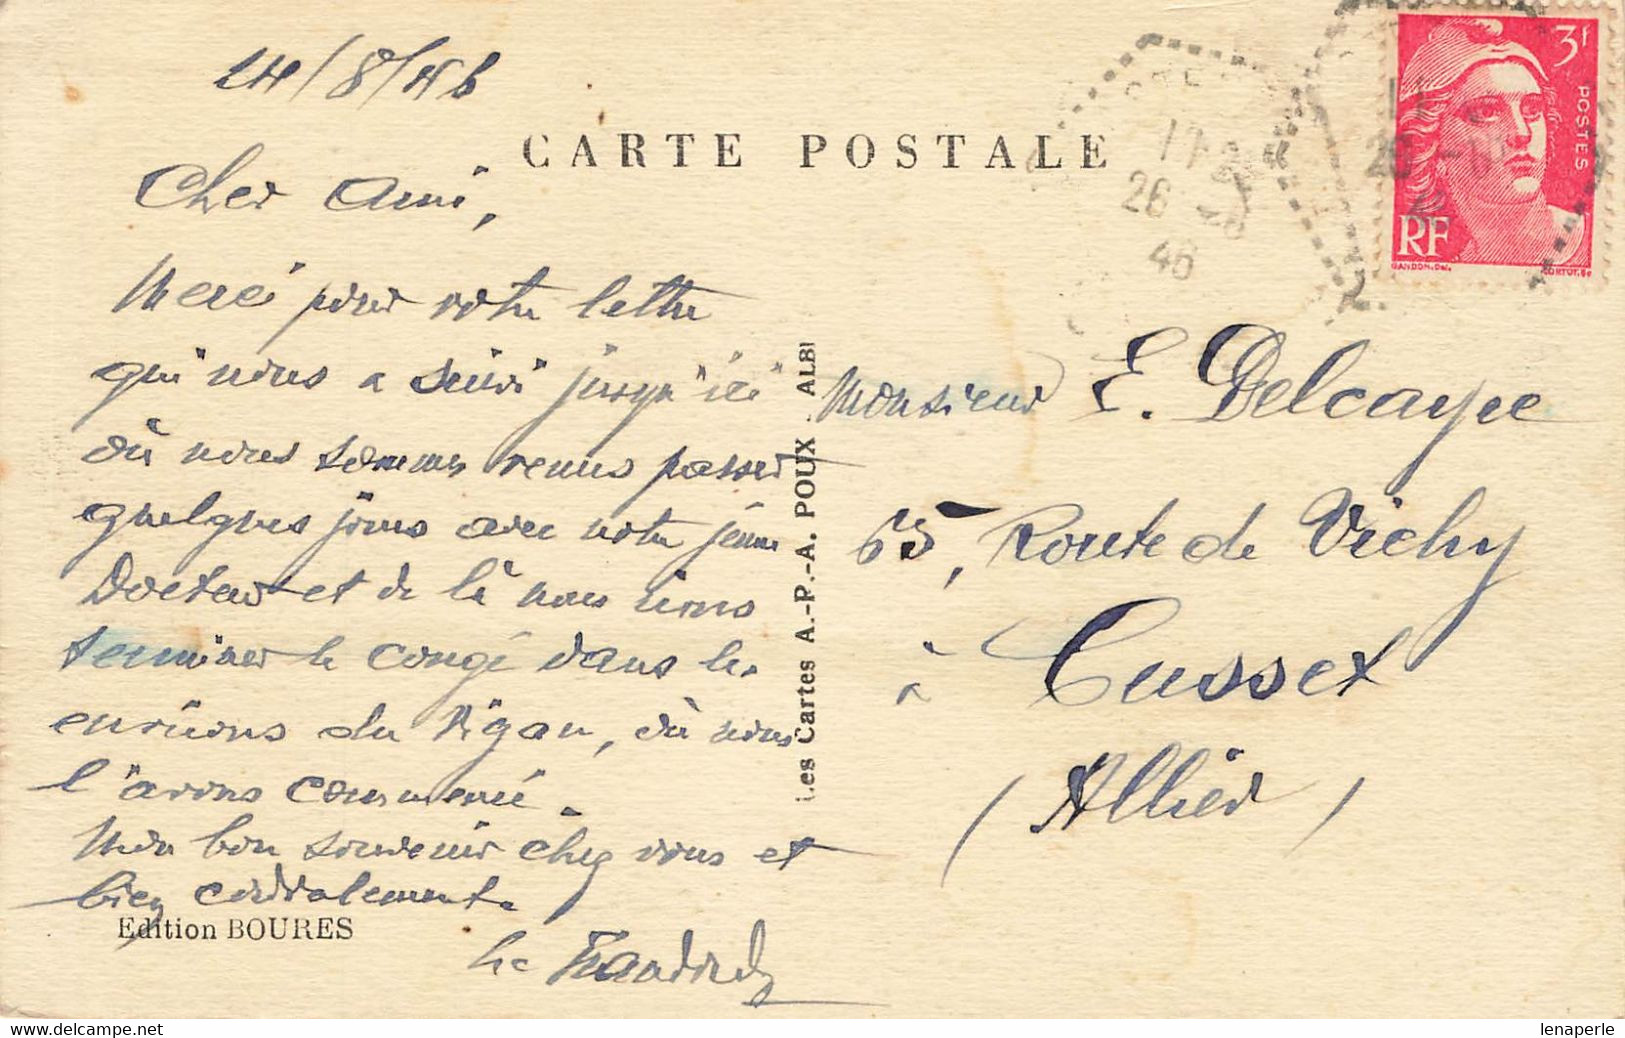 24/8/46
CARTE POSTALE
Cher Ami,
Merci pour votre lettre
qui nous a suivi jusqu'ici
où nous sommes venus passer
quelques jours avec notre jeune
Docteur et de là nous irons
terminer le congé dans les
environs du Vigan, où nous
l'avons commencé.
Mon bon souvenir chez vous et
bien cordialement.
Edition BOURES
Les Cartes A.-P.-A. POUX _ ALBI
17
26
46
3f
POSTES
RF
GANDON.Del.
CORTOT.Sc
Monsieur E. Delcaye
65, Route de Vichy
à Cusset
(Allier)
lenaperle
www.delcampe.net